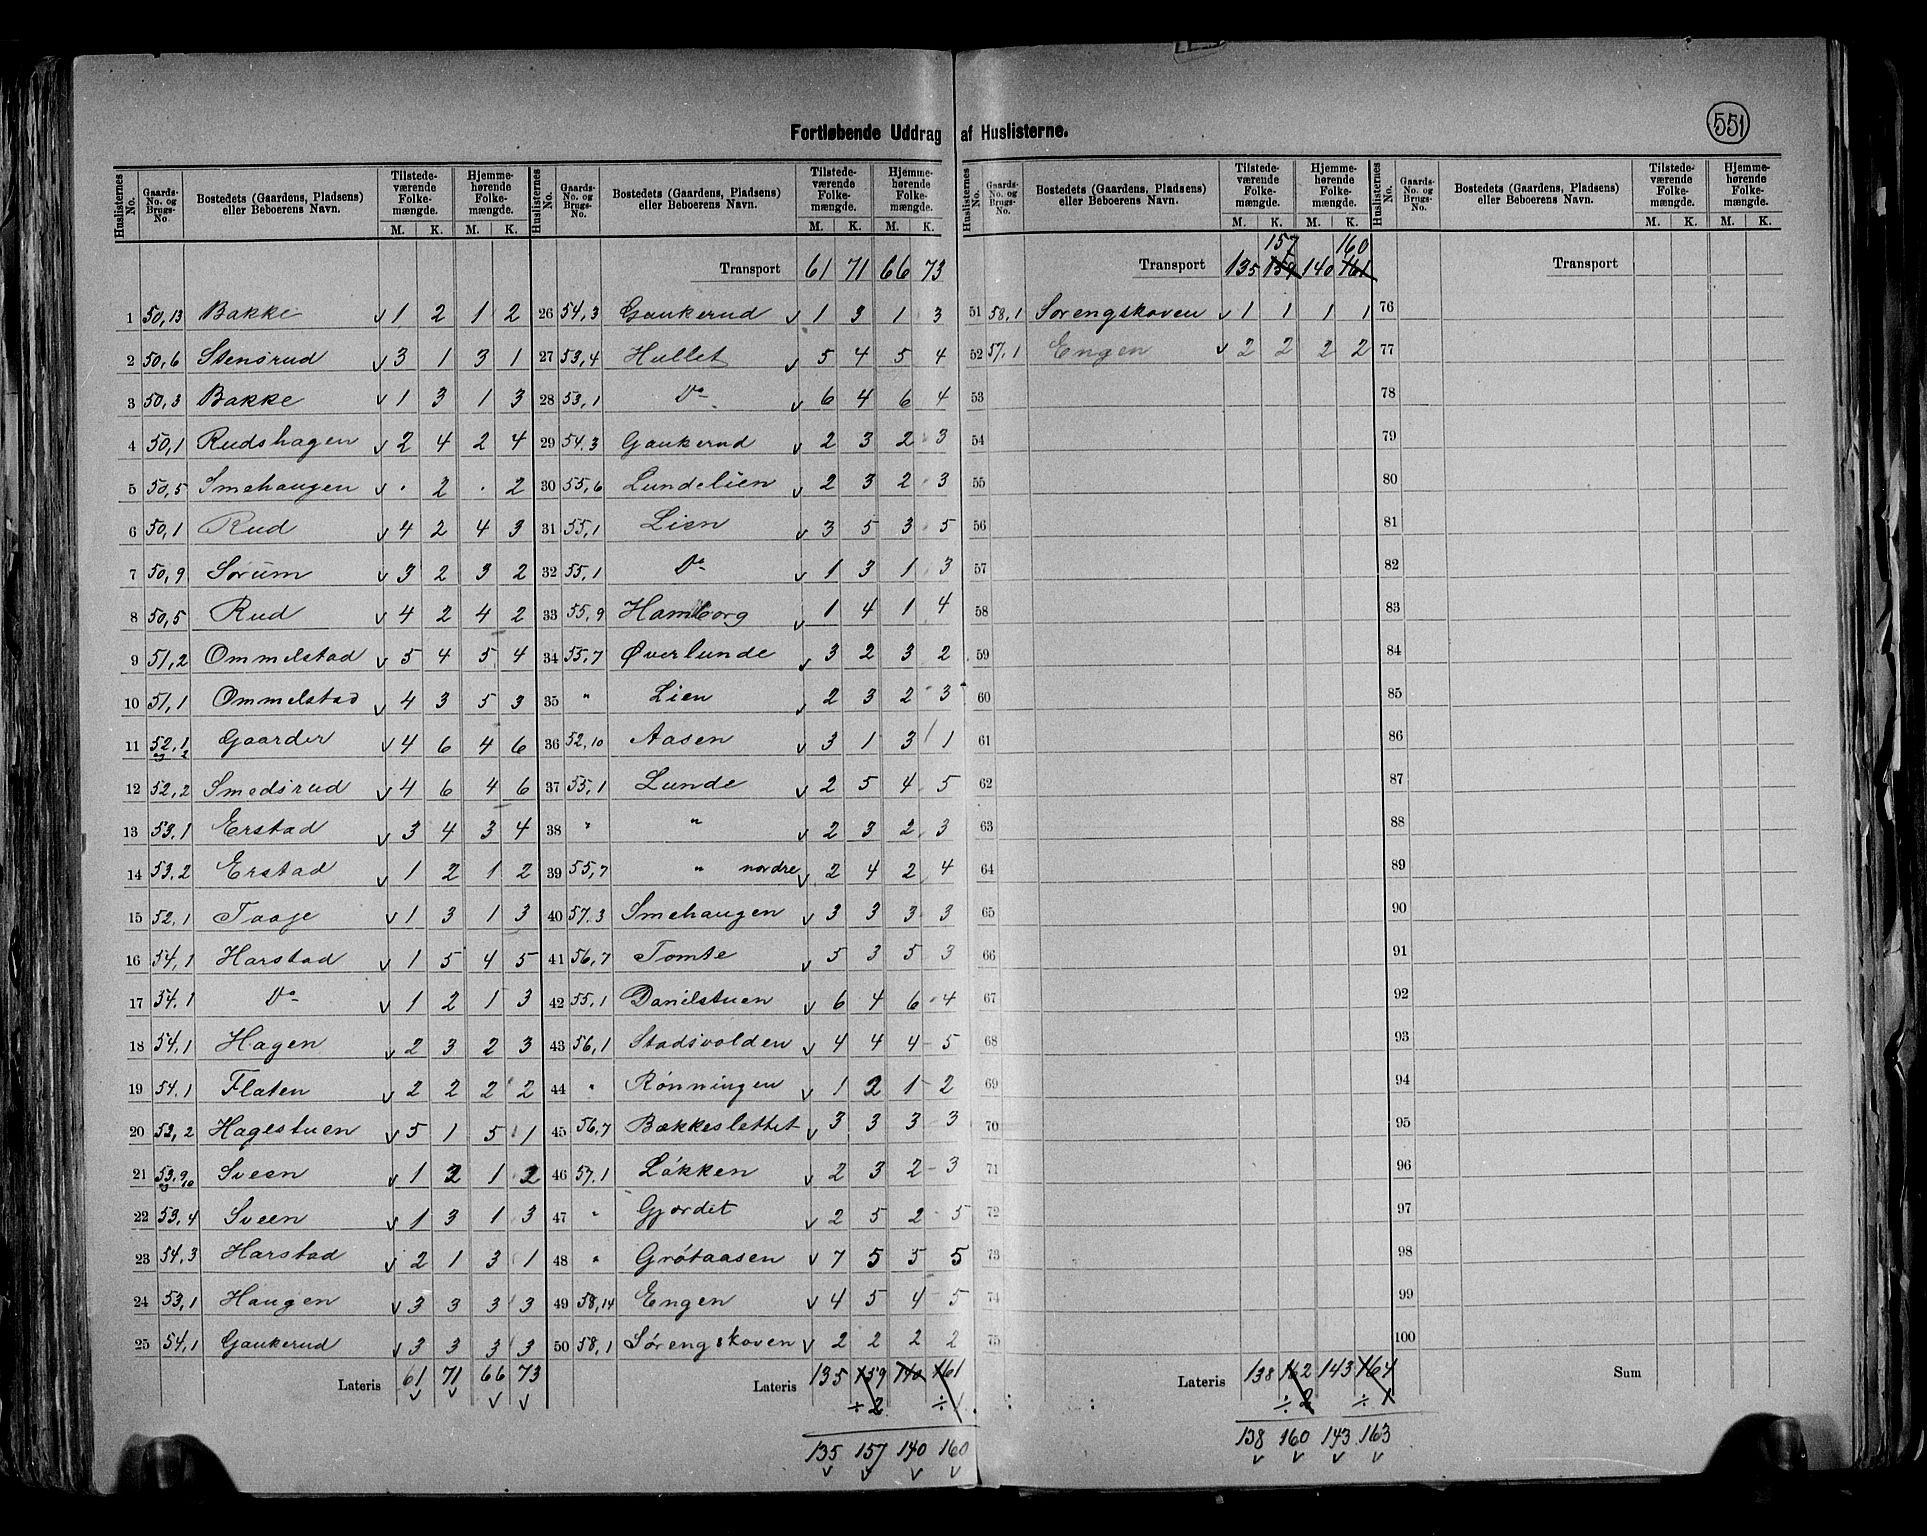 551
Fortløbende Uddrag af Huslisterne.
Huslisternes No. | Gaards-No. og Brugs-No. | Bostedets (Gaardens, Pladsens) eller Beboerens Navn. | Tilstedeværende Folkemængde. M. K. | Hjemmehørende Folkemængde. M. K.
1 50,13 Bakke v 1 2 1 2
2 50,6 Stensrud v 3 1 3 1
3 50,3 Bakke v 1 3 1 3
4 50,1 Rudshagen v 2 4 2 4
5 50,5 Smehaugen v . 2 . 2
6 50,1 Rud v 4 2 4 3
7 50,9 Sørum v 3 2 3 2
8 50,5 Rud v 4 2 4 2
9 51,2 Ommelstad v 5 4 5 4
10 51,1 Ommelstad v 4 3 5 3
11 52,1 og 2 Gaarder v 4 6 4 6
12 52,2 Smedsrud v 4 6 4 6
13 53,1 Erstad v 3 4 3 4
14 53,2 Erstad v 1 2 1 2
15 52,1 Taaje v 1 3 1 3
16 54,1 Harstad v 1 5 4 5
17 54,1 Do v 1 2 1 3
18 54,1 Hagen v 2 3 2 3
19 54,1 Flaten v 2 2 2 2
20 53,2 Hagestuen v 5 1 5 1
21 53,9 og 10 Sveen v 1 2 1 2
22 53,4 Sveen v 1 3 1 3
23 54,3 Harstad v 2 1 3 1
24 53,1 Haugen v 3 3 3 3
25 54,1 Gaukerud v 3 3 3 3
Lateris 61 71 66 73
Huslisternes No. | Gaards-No. og Brugs-No. | Bostedets (Gaardens, Pladsens) eller Beboerens Navn. | Tilstedeværende Folkemængde. M. K. | Hjemmehørende Folkemængde. M. K.
Transport 61 71 66 73
26 54,3 Gaukerud v 1 3 1 3
27 53,4 Hullet v 5 4 5 4
28 53,1 Do v 6 4 6 4
29 54,3 Gaukerud v 2 3 2 3
30 55,6 Lundelien v 2 3 2 3
31 55,1 Lien v 3 5 3 5
32 55,1 Do v 1 3 1 3
33 55,9 Hamborg v 1 4 1 4
34 55,7 Øverlunde v 3 2 3 2
35 " Lien v 2 3 2 3
36 52,10 Aasen v 3 1 3 1
37 55,1 Lunde v 2 5 4 5
38 " " v 2 3 2 3
39 55,7 " nordre v 2 4 2 4
40 57,3 Smehaugen v 3 3 3 3
41 56,7 Tomte v 5 3 5 3
42 55,1 Danilstuen v 6 4 6 4
43 56,1 Stadsvolden v 4 4 4 5
44 " Rønningen v 1 2 1 2
45 56,7 Bækkeslettet v 3 3 3 3
46 57,1 Løkken v 2 3 2 3
47 " Gjordet v 2 5 2 5
48 " Grøtaasen v 7 5 5 5
49 58,14 Engen v 4 5 4 5
50 58,1 Sørengskoven v 2 2 2 2
Lateris 135 159 140 161
÷ 2 ÷ 1
135 157 140 160
Huslisternes No. | Gaards-No. og Brugs-No. | Bostedets (Gaardens, Pladsens) eller Beboerens Navn. | Tilstedeværende Folkemængde. M. K. | Hjemmehørende Folkemængde. M. K.
157 160
Transport 135 159 140 161
51 58,1 Sørengskoven v 1 1 1 1
52 57,1 Engen v 2 2 2 2
53
54
55
56
57
58
59
60
61
62
63
64
65
66
67
68
69
70
71
72
73
74
75
Lateris 138 162 143 164
÷ 2 ÷ 1
138 160 143 163
Huslisternes No. | Gaards-No. og Brugs-No. | Bostedets (Gaardens, Pladsens) eller Beboerens Navn. | Tilstedeværende Folkemængde. M. K. | Hjemmehørende Folkemængde. M. K.
Transport
76
77
78
79
80
81
82
83
84
85
86
87
88
89
90
91
92
93
94
95
96
97
98
99
100
Sum